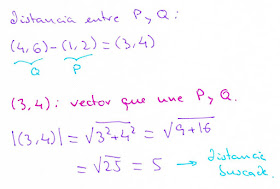 Distancia entre P y Q:
(4,6)-(1,2)=(3,4)
Q P
(3,4): vector que une P y Q.
|(3,4)| = √3²+4² = √9+16
= √25 = 5 → distancia
buscada.